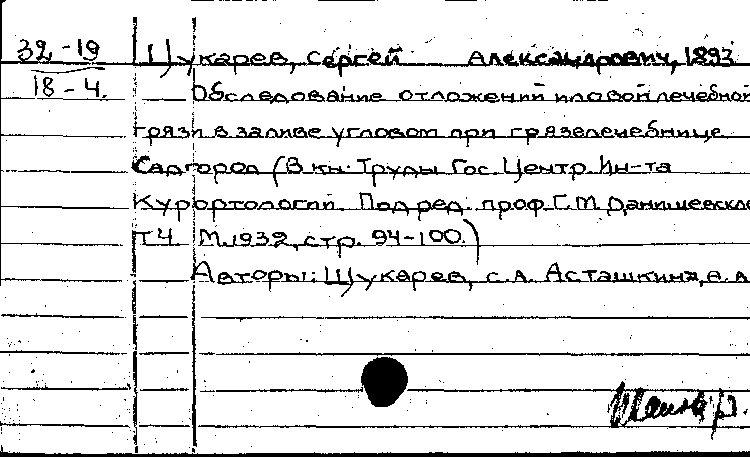 32-19 Щукарев, Сергей Александрович, 1893
18-4. Обследование отложений иловой лечебной
грязи в заливе угловом при грязелечебнице
Садгород (В кн. Труды Гос. Центр. Ин-та
Курортологии. Под ред. проф. Г.М. Данишевско
Т4. М. 1932, стр. 94-100.)
Авторы: Щукарев, С.А. Асташкина, А.А